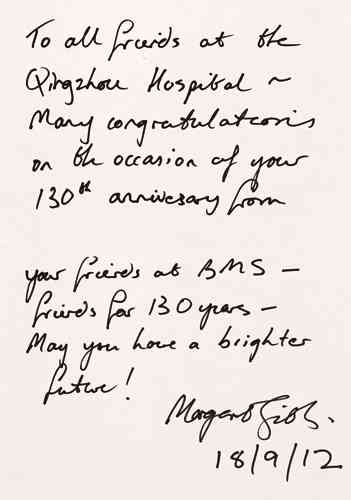 To all friends at the
Qingzhou Hospital ~
Many congratulations
on the occasion of your
130th annivesary from
your friends at BMS –
friends for 130 years –
May you have a brighter
future!
Margaret Gibbs.
18/9/12